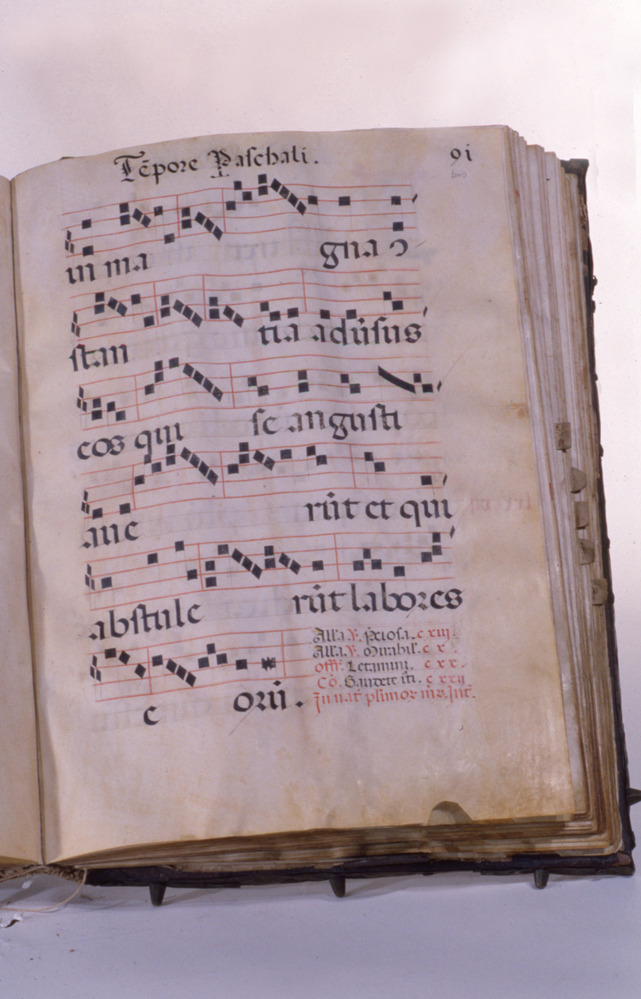 Te᷃pore Paschali. 91
in ma gna ↄ
stan tia adu᷃sus
eos qui se angusti
aue ru᷃t et qui
abstule ru᷃t labores
e oru᷃.
All'a ℣. p̃ciosa. c xiii.
All'a ℣. Mirabil'. c x.
off̃. Letamini. c xx.
Cō. Gaudete iti. c xxii